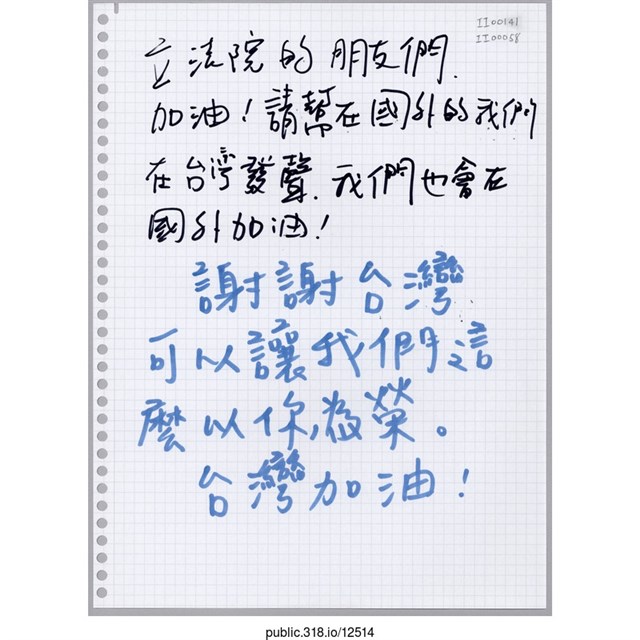 II00141
II00058
立法院的朋友們.
加油!請幫在國外的我們
在台灣發聲.我們也會在
國外加油!
謝謝台灣
可以讓我們這
麼以你為榮。
台灣加油!
public.318.io/12514